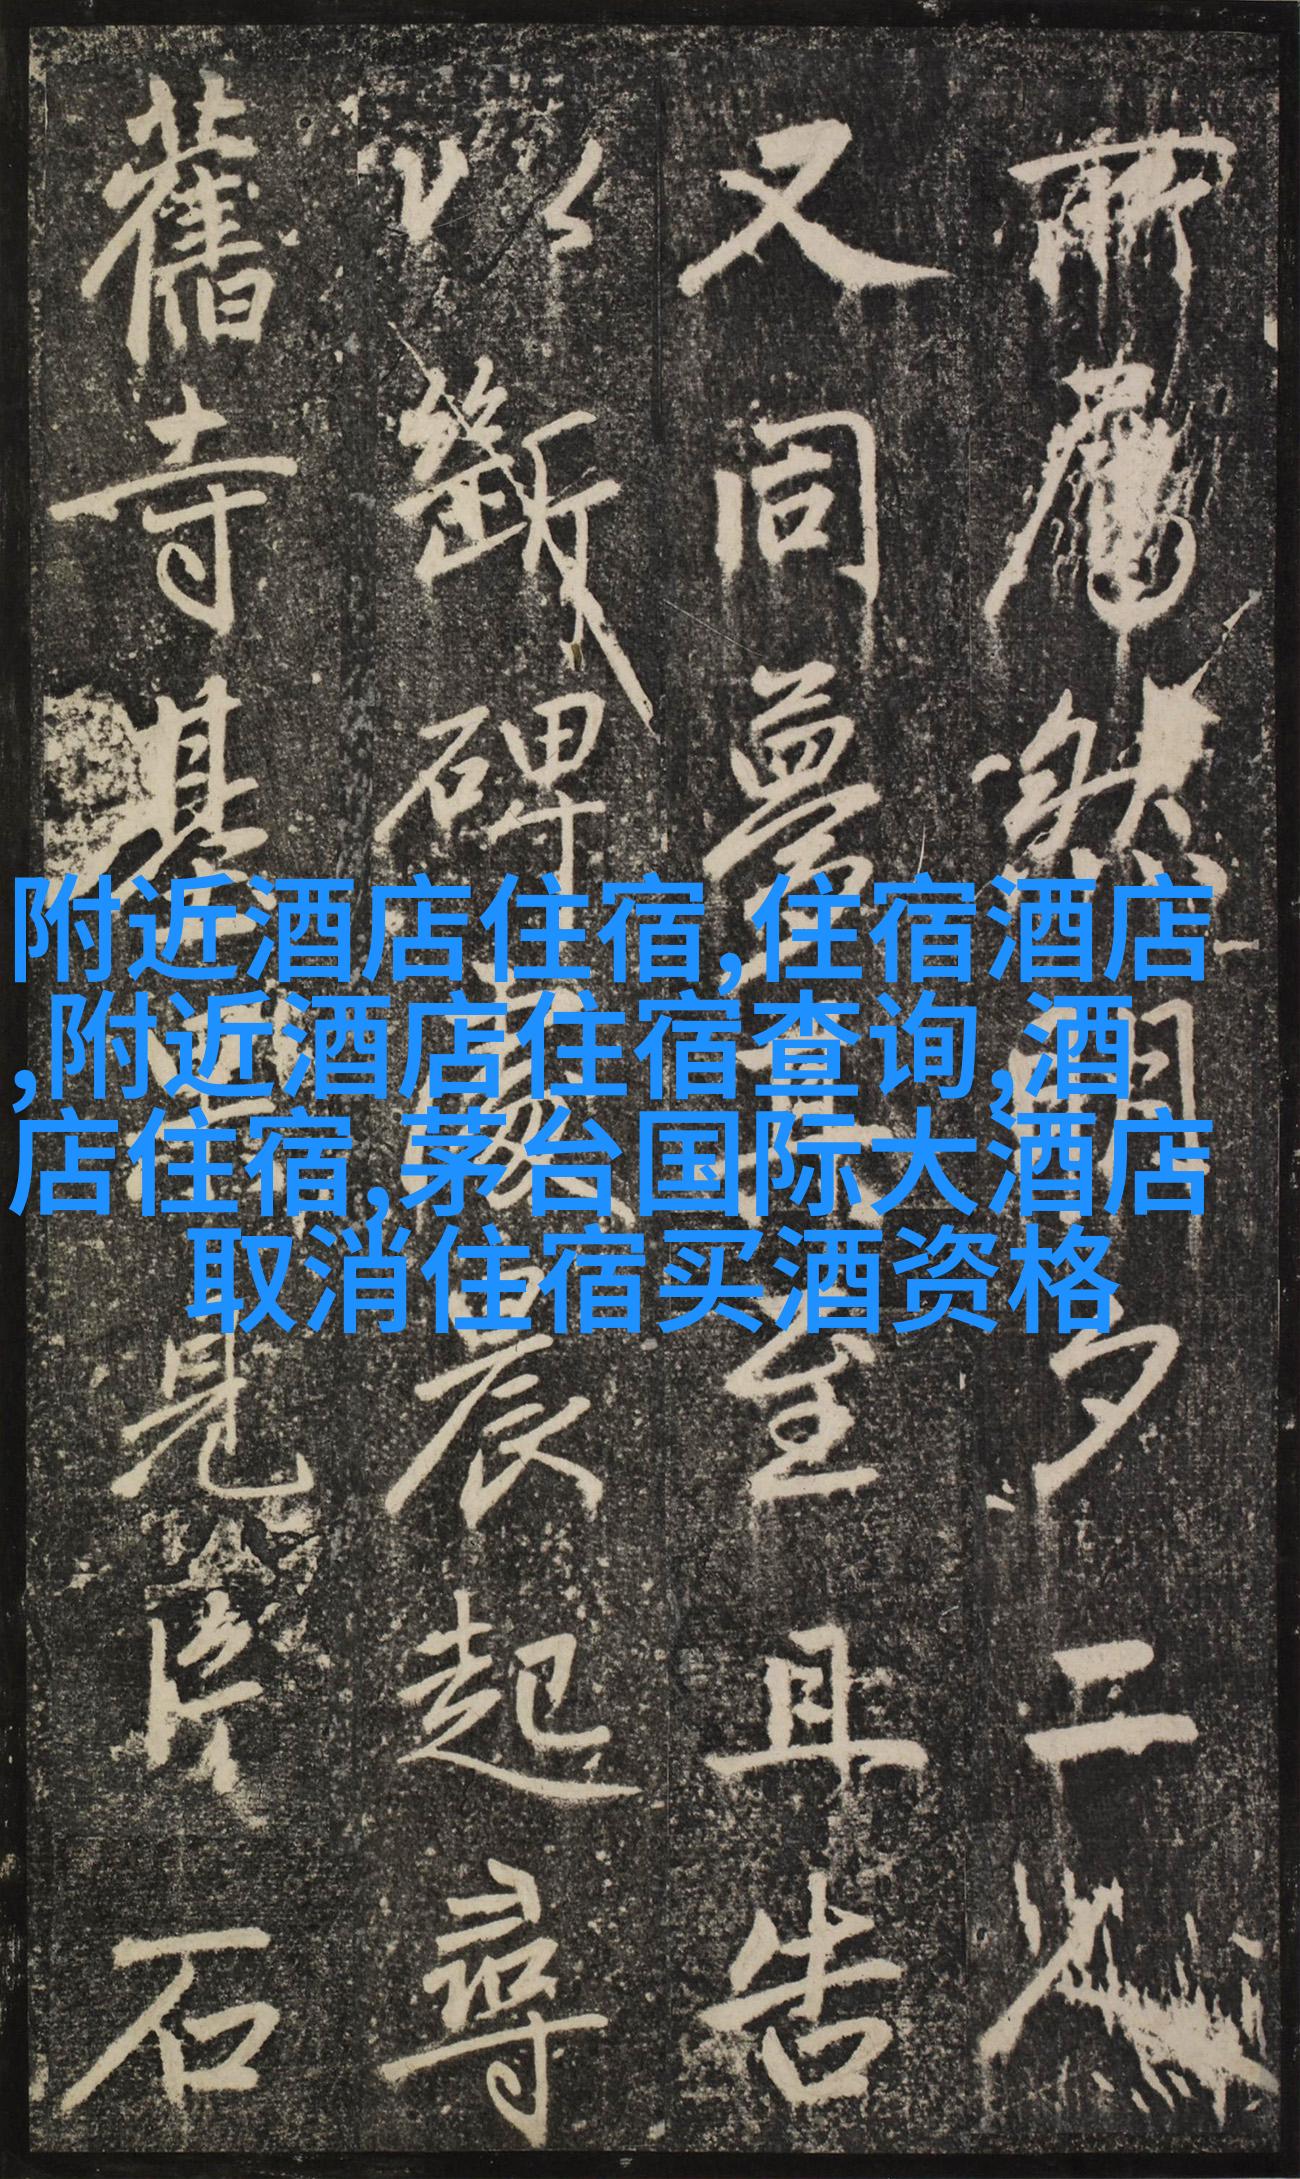 所然明夕二
又同夢至且告
以斷碑處晨起尋
舊寺基見片石
附近酒店住宿,住宿酒店
,附近酒店住宿查询,酒
店住宿,茅台国际大酒店
取消住宿买酒资格